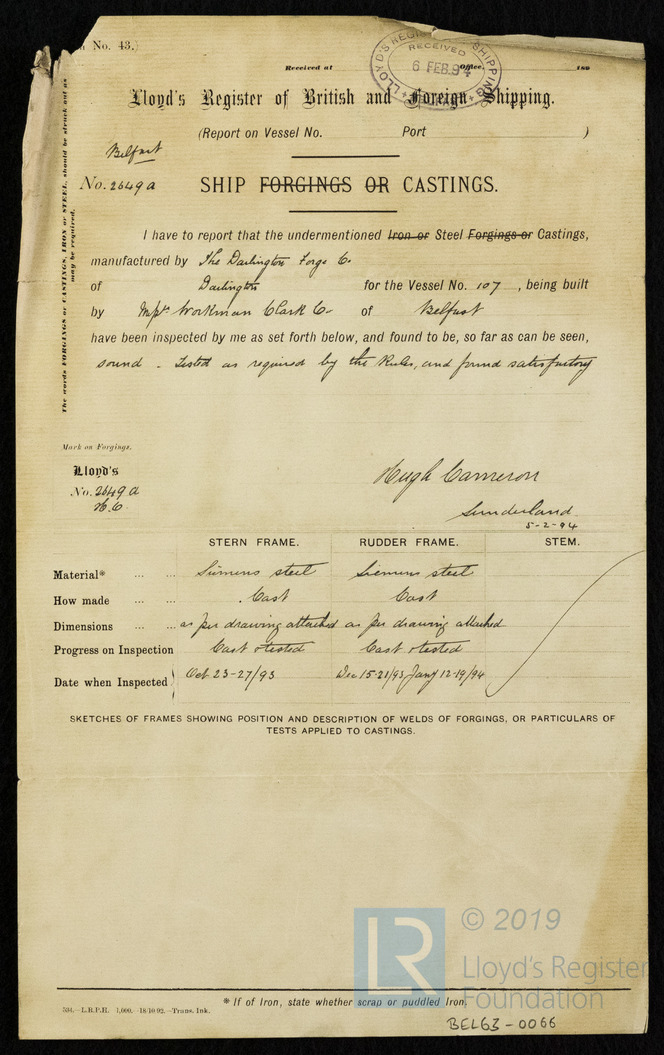 No. 43.
LLOYD'S REGISTER SHIPPING
RECEIVED
6 FEB. 94
Received at Office, 189
Lloyd's Register of British and Foreign Shipping.
(Report on Vessel No. Port )
Belfast
No. 2649a
SHIP FORGINGS OR CASTINGS.
The words FORGINGS or CASTINGS, IRON or STEEL, should be struck out as may be required.
I have to report that the undermentioned Iron or Steel Forgings or Castings,
manufactured by The Darlington Forge Co.
of Darlington for the Vessel No. 107, being built
by Workman Clark Co. of Belfast
have been inspected by me as set forth below, and found to be, so far as can be seen,
sound - Tested as required by the Rules, and found satisfactory
Mark on Forgings.
Lloyd's
No. 2649a
H.C.
Hugh Cameron
Sunderland
5-2-94
STERN FRAME. RUDDER FRAME. STEM.
Material* ... ... Siemens steel Siemens steel
How made ... Cast Cast
Dimensions ... ... as per drawing attached as per drawing attached
Progress on Inspection Cast & tested Cast & tested
Date when Inspected Oct 23-27/93 Dec 15-21/93, Jany 12-19/94
SKETCHES OF FRAMES SHOWING POSITION AND DESCRIPTION OF WELDS OF FORGINGS, OR PARTICULARS OF
TESTS APPLIED TO CASTINGS.
LR
© 2019
Lloyd's Register
Foundation
* If of Iron, state whether scrap or puddled Iron.
534.—L.B.P.H. 1,000.—18.10.92.—Trans. Ink.
BEL63-0066